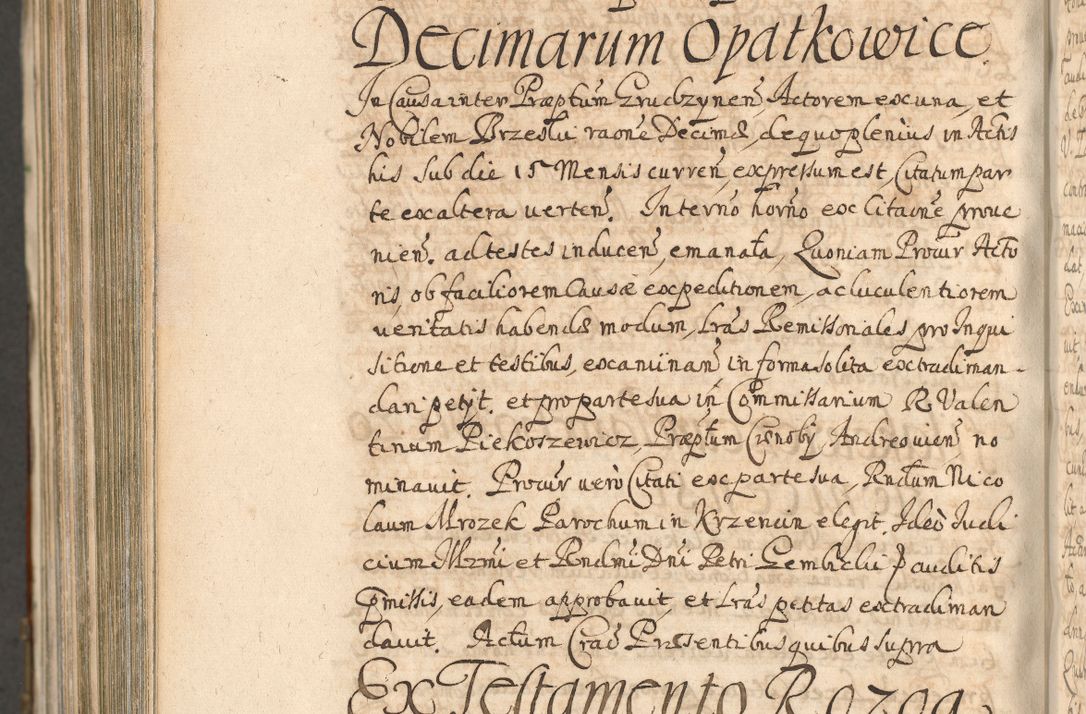 Decimarum Opatkowice.
In Causa inter Præptum Grudzynen̄ Actorem ex una, et
Nobilem Brzeski raōne Decimæ, de quo plenius in Actis
his sub die 15 Mensis curren̄, expressum est, Citatum par
te ex altera verten̄. In tern̄o horn̄o ex Citaōne prove
nien̄. ad testes inducen̄, emanata, Quoniam Procur̄ Acto
ris, ob faciliorem Causæ expeditionem, ac luculentiorem
veritatis habendæ modum, Lrās Remissoriales pro Inqui
sitione et testibus, examinan̄ in forma solita extradi man-
dari petijt. et pro parte sua in Com̄missarium R. Valen
tinum Piekoszewicz, Præptum Cœnobij, Andreovien̄ no
minavit. Procur̄ verò Citati ex parte sua, Rndum Nico
laum Mrozek Parochum in Krzencin elegit. Ideò Judi
cium Illrm̄i et Rndmi Dn̄i Petri Gembicki auditis
pmissis, eadem approbavit, et Lrās petitas extradi man
davit. Actum Crac̄ Præsentibus quibus supra
Ex Testamento Rozga